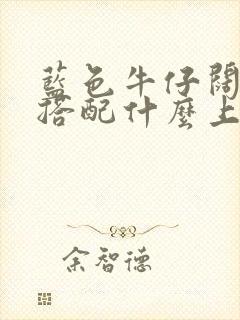 藍色牛仔闊
搭配什麼上
余智德